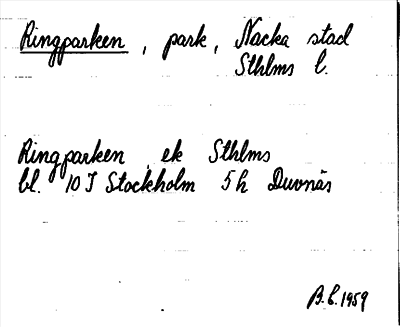 Ringparken, park, Nacka stad
Sthlms l.
Ringparken ek Sthlms
bl. 10 I Stockholm 5 h Duvnäs
B.E. 1959